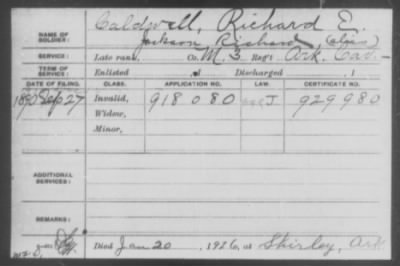 NAME OF SOLDIER: Caldwell, Richard E.
Jackson, Richard (alias)
SERVICE: Late rank, Co. M. 3 Reg't Ark. Cav.
TERM OF SERVICE: Enlisted , 1 Discharged , 1
DATE OF FILING. CLASS. APPLICATION NO. LAW. CERTIFICATE NO.
1890 Sep 27 Invalid, 918080 J 929980
Widow,
Minor,
ADDITIONAL SERVICES:
REMARKS:
Died Jan 20, 1926, at Shirley, Ark